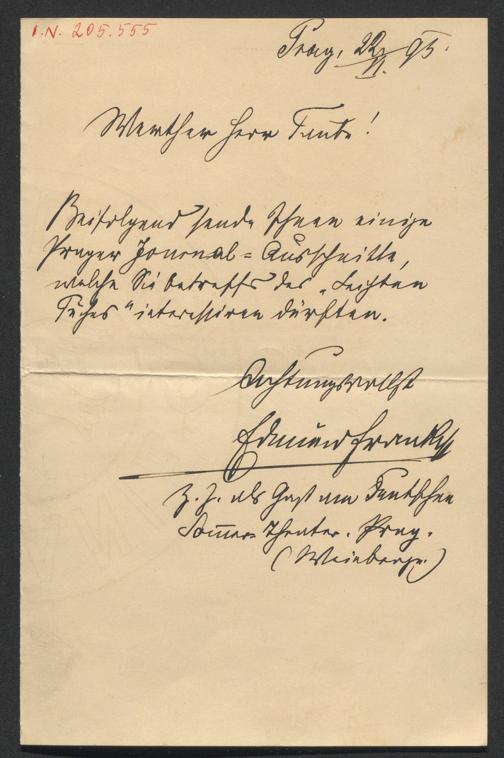 I.N. 205.555
Prag, 22/VI. 95.
Werther Herr Taube!
Beifolgend sende Ihnen einige
Prager Journal-Ausschnitte,
welche Sie betreffs des „Leichten
Tuches“ interessiren dürften.
Achtungsvollst
Edmund
z. Z. als Gast am Deutschen
Sommer Theater. Prag.
(Weinberge)